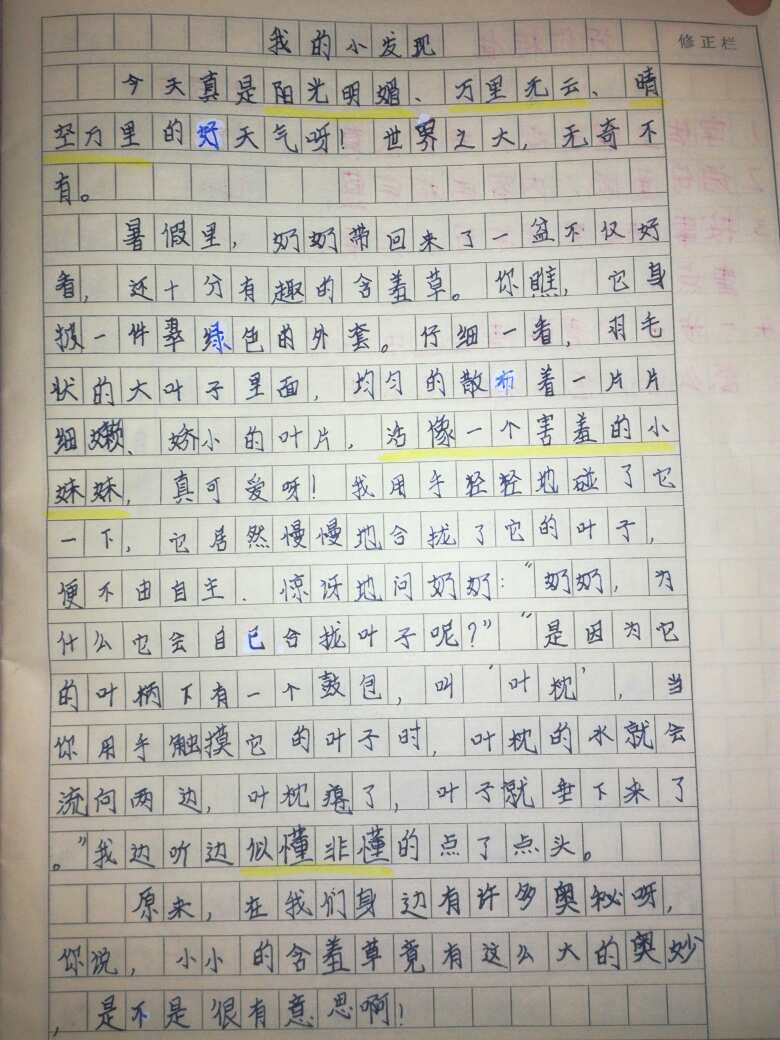 我的小发现
修正栏
今天真是阳光明媚、万里无云、晴
空万里的好天气呀！世界之大，无奇不
有。
暑假里，奶奶带回来了一盆不仅好
看，还十分有趣的含羞草。你瞧，它身
披一件翠绿色的外套。仔细一看，羽毛
状的大叶子里面，均匀的散布着一片片
细嫩、娇小的叶片，活像一个害羞的小
妹妹，真可爱呀！我用手轻轻地碰了它
一下，它居然慢慢地合拢了它的叶子，
便不由自主、惊讶地问奶奶：“奶奶，为
什么它会自己合拢叶子呢？”“是因为它
的叶柄下有一个鼓包，叫‘叶枕’，当
你用手触摸它的叶子时，叶枕的水就会
流向两边，叶枕瘪了，叶子就垂下来了
。”我边听边似懂非懂的点了点头。
原来，在我们身边有许多奥秘呀，
你说，小小的含羞草竟有这么大的奥妙
，是不是很有意思啊！